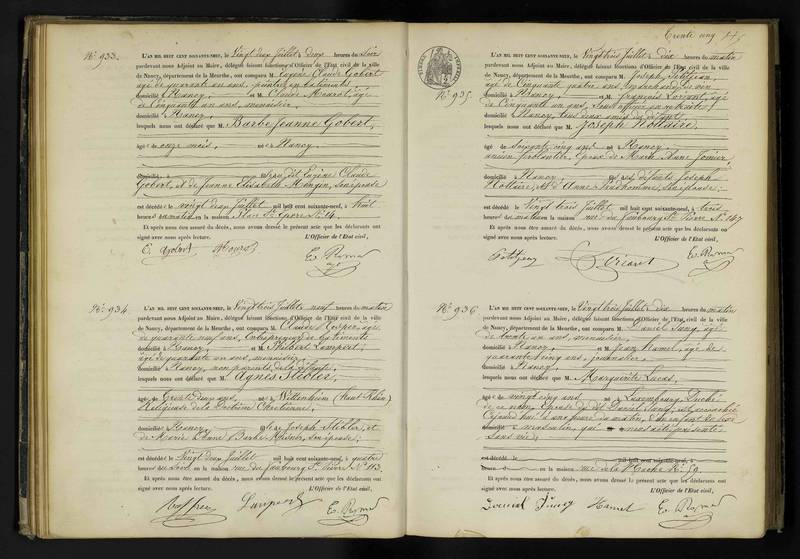 Trente un
N° 933.
L'AN MIL HUIT CENT SOIXANTE-NEUF, le Vingt deux Juillet à deux heures du soir
pardevant nous Adjoint au Maire, délégué faisant fonctions d'Officier de l'Etat civil de la ville
de Nancy, département de la Meurthe, ont comparu M. Eugène Claude Gobert
âgé de quarante un ans, peintre en bâtiments
domicilié à Nancy, et M. Claude Mourot, âgé
de Cinquante un ans, menuisier,
domicilié à Nancy,
lesquels nous ont déclaré que M. Barbe Jeanne Gobert,
âgée de onze mois, née à Nancy,
domicilié à du dit Eugène Claude
Gobert, et de Jeanne Elisabeth Mangin, son épouse
est décédée le vingt deux Juillet mil huit cent soixante-neuf, à huit
heures du matin en la maison Place St Epvre N° 14.
Et après nous être assuré du décès, nous avons dressé le présent acte que les déclarants ont
signé avec nous après lecture. L'Officier de l'Etat civil,
E. Gobert Mourot
N° 934.
L'AN MIL HUIT CENT SOIXANTE-NEUF, le Vingt trois Juillet à neuf heures du matin
pardevant nous Adjoint au Maire, délégué faisant fonctions d'Officier de l'Etat civil de la ville
de Nancy, département de la Meurthe, ont comparu M. Claude
de quarante neuf ans, Entrepreneur de bâtiments
domicilié à Nancy, et M. Philbert Lampert,
âgé de quarante un ans, menuisier,
domicilié à Nancy, non parents de la défunte,
lesquels nous ont déclaré que M. Agnès Stébler,
âgée de Trente deux ans, née à Wittenheim (Haut Rhin)
Religieuse de la Doctrine Chrétienne,
domiciliée à Nancy, fille de Joseph Stébler, et
de Marie Anne Barbe son épouse;
est décédée le Vingt deux Juillet mil huit cent soixante-neuf, à quatre
heures du soir en la maison rue du faubourg St Pierre N° 113.
Et après nous être assuré du décès, nous avons dressé le présent acte que les déclarants ont
signé avec nous après lecture. L'Officier de l'Etat civil,
N° 935.
L'AN MIL HUIT CENT SOIXANTE-NEUF, le Vingt trois Juillet à dix heures du matin
pardevant nous Adjoint au Maire, délégué faisant fonctions d'Officier de l'Etat civil de la ville
de Nancy, département de la Meurthe, ont comparu M. Joseph Petitjean,
âgé de Cinquante quatre ans, Marchand de vin
domicilié à Nancy, et M. François
de Cinquante un ans, Sous officier en retraite,
domicilié à Nancy, tous deux amis du défunt,
lesquels nous ont déclaré que M. Joseph Nollaire,
âgé de soixante cinq ans né à Nancy,
ancien ferblantier, Epoux de Marie Anne
domicilié à Nancy, fils de défunts Joseph
Nollaire, et d'Anne son épouse;
est décédé le Vingt trois Juillet mil huit cent soixante-neuf, à trois
heures du matin en la maison rue du faubourg St Pierre N° 147
Et après nous être assuré du décès, nous avons dressé le présent acte que les déclarants ont
signé avec nous après lecture. L'Officier de l'Etat civil,
Petitjean
N° 936.
L'AN MIL HUIT CENT SOIXANTE-NEUF, le Vingt trois Juillet à dix heures du matin
pardevant nous Adjoint au Maire, délégué faisant fonctions d'Officier de l'Etat civil de la ville
de Nancy, département de la Meurthe, ont comparu M. Daniel
de trente un ans, menuisier,
domicilié à Nancy, et M. Jean Hamel, âgé de
quarante cinq ans, journalier,
domicilié à Nancy,
lesquels nous ont déclaré que M. Marguerite Lucas,
âgée de vingt cinq ans née à Luxembourg, Duché
de ce nom, Epouse du dit Daniel est accouchée
aujourd'hui à heure du matin, d'un enfant du sexe
masculin, qui nous a été présenté
sans vie;
est décédé le mil huit cent soixante-neuf, à
heures en la maison rue de la Hache N° 59.
Et après nous être assuré du décès, nous avons dressé le présent acte que les déclarants ont
signé avec nous après lecture. L'Officier de l'Etat civil,
Hamel